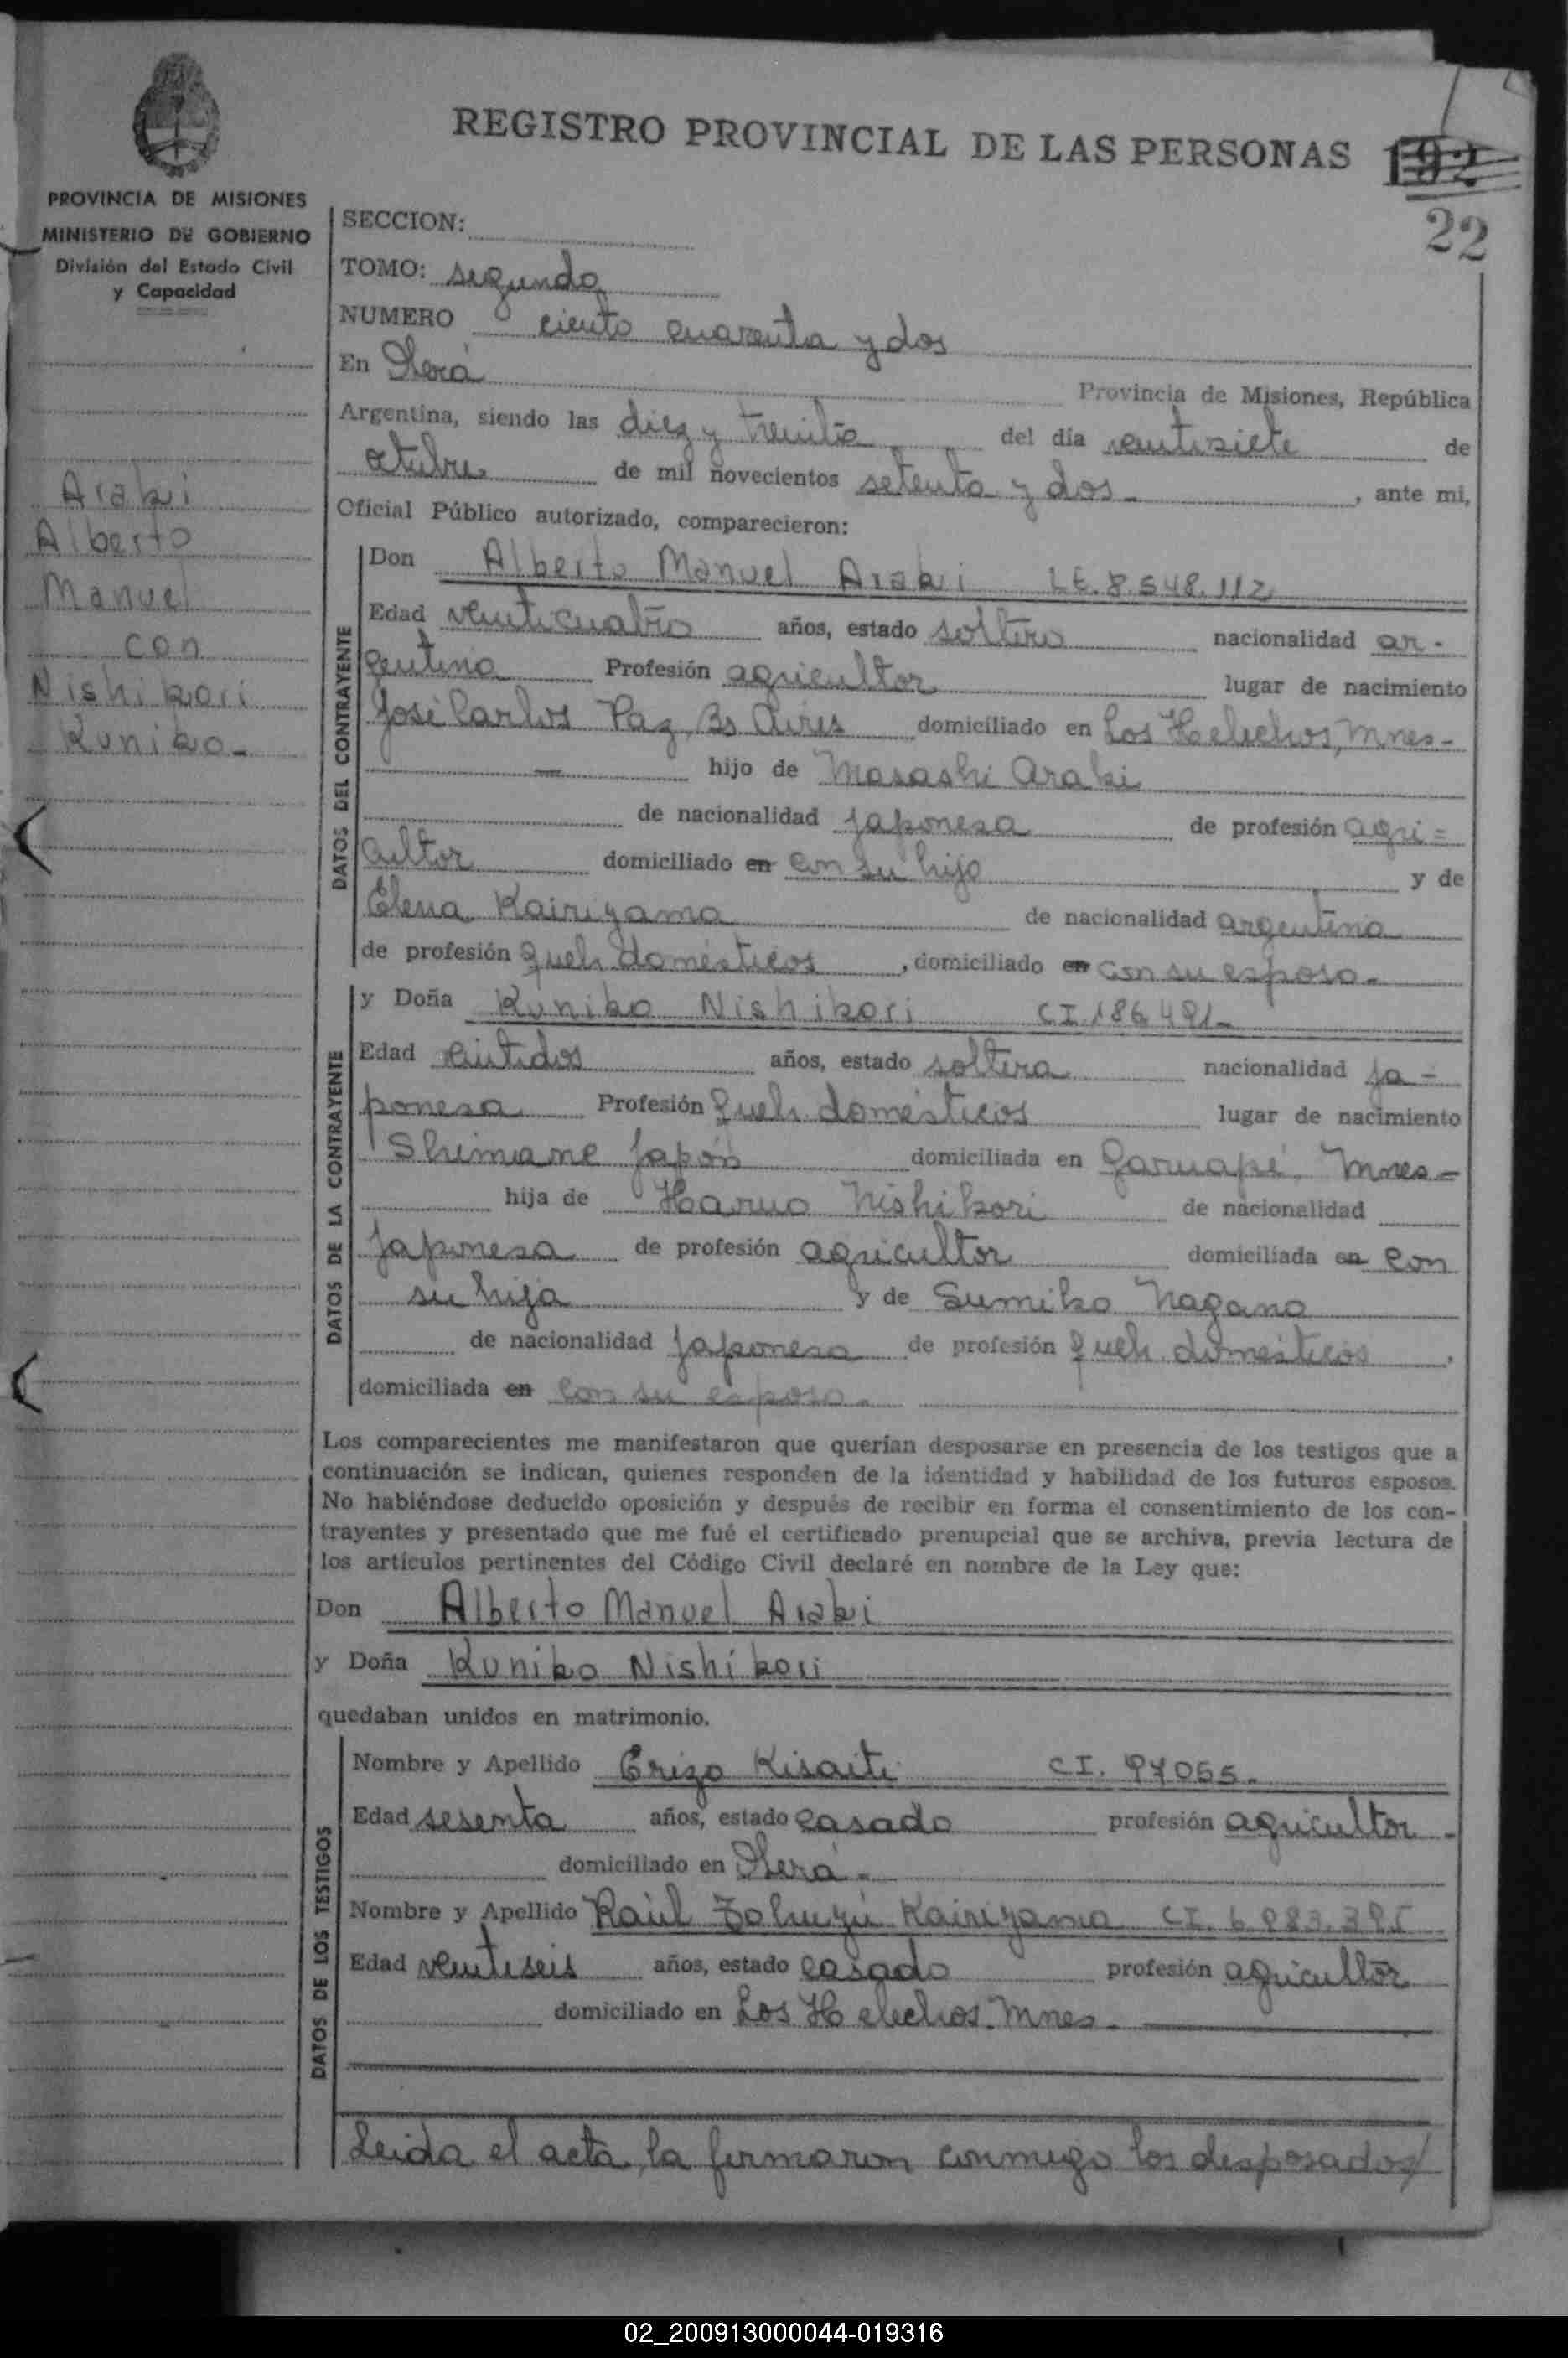 REGISTRO PROVINCIAL DE LAS PERSONAS 192
22
PROVINCIA DE MISIONES
MINISTERIO DE GOBIERNO
División del Estado Civil
y Capacidad
Araki
Alberto
Manuel
con
Nishikori
Kuniko-
SECCION:
TOMO: segundo
NUMERO ciento cuarenta y dos
En Oberá Provincia de Misiones, República
Argentina, siendo las diez y treinta del día veintisiete de
octubre de mil novecientos setenta y dos- , ante mi,
Oficial Público autorizado, comparecieron:
DATOS DEL CONTRAYENTE
Don Alberto Manuel Araki LE.8.548.112
Edad veinticuatro años, estado soltero nacionalidad ar-
gentina Profesión agricultor lugar de nacimiento
José Carlos Paz, Bs Aires domiciliado en Los Helechos, Mnes-
hijo de Masashi Araki
de nacionalidad japonesa de profesión agri=
cultor domiciliado en con su hijo y de
Elena Kairiyama de nacionalidad argentina
de profesión queh domésticos , domiciliado en con su esposo-
DATOS DE LA CONTRAYENTE
y Doña Kuniko Nishikori CI 186.491-
Edad veintidos años, estado soltera nacionalidad ja-
ponesa Profesión queh. domésticos lugar de nacimiento
Shimane Japón domiciliada en Garuapé, Mnes-
hija de Haruo Nishikori de nacionalidad
japonesa de profesión agricultor domiciliada en con
su hija y de Sumiko Nagano
de nacionalidad japonesa de profesión queh domésticos ,
domiciliada en con su esposo-
Los comparecientes me manifestaron que querían desposarse en presencia de los testigos que a
continuación se indican, quienes responden de la identidad y habilidad de los futuros esposos.
No habiéndose deducido oposición y después de recibir en forma el consentimiento de los con-
trayentes y presentado que me fué el certificado prenupcial que se archiva, previa lectura de
los artículos pertinentes del Código Civil declaré en nombre de la Ley que:
Don Alberto Manuel Araki
y Doña Kuniko Nishikori
quedaban unidos en matrimonio.
DATOS DE LOS TESTIGOS
Nombre y Apellido Erizo Kisaiti CI. 97055-
Edad sesenta años, estado casado profesión agricultor-
domiciliado en Oberá-
Nombre y Apellido Raúl Kairiyama CI. 6.083.395
Edad veintiseis años, estado casado profesión agricultor
domiciliado en Los Helechos. Mnes-
Leida el acta, la firmaron conmigo los desposados/
02_200913000044-019316